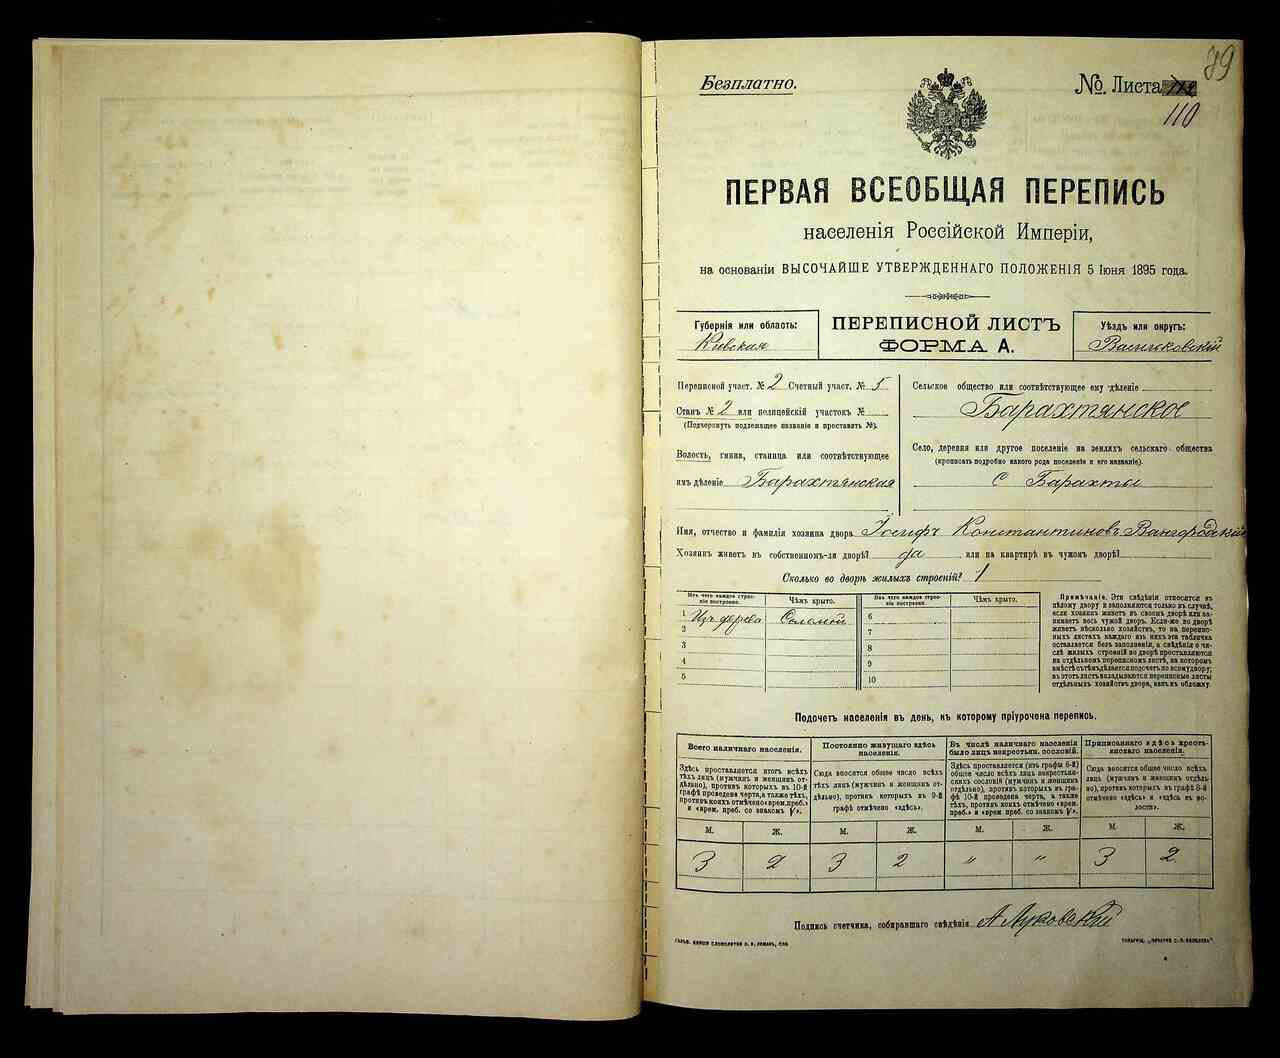 89
Безплатно.
№. Листа 112
110
ПЕРВАЯ ВСЕОБЩАЯ ПЕРЕПИСЬ
населенія Россійской Имперіи,
на основаніи ВЫСОЧАЙШЕ УТВЕРЖДЕННАГО ПОЛОЖЕНІЯ 5 Іюня 1895 года.
Губернія или область:
Кіевская
ПЕРЕПИСНОЙ ЛИСТЪ
ФОРМА А.
Уѣздъ или округъ:
Васильковскій
Переписной участ. № 2 Счетный участ. № 5
Станъ № 2 или полицейскій участокъ №
(Подчеркнуть подлежащее названіе и проставить №).
Волость, гмина, станица или соотвѣтствующее
имъ дѣленіе Барахтянская
Сельское общество или соотвѣтствующее ему дѣленіе
Барахтянское
Село, деревня или другое поселеніе на земляхъ сельскаго общества
(прописать подробно какого рода поселеніе и его названіе).
С Барахты
Имя, отчество и фамилія хозяина двора Іосифъ Константиновъ Вангородскій
Хозяинъ живетъ въ собственномъ-ли дворѣ? да или на квартирѣ въ чужомъ дворѣ?
Сколько во дворѣ жилыхъ строеній? 1
Изъ чего каждое строеніе построено. Чѣмъ крыто. Изъ чего каждое строеніе построено. Чѣмъ крыто.
1 Изъ дерева Соломой 6
2 7
3 8
4 9
5 10
Примѣчаніе. Эти свѣдѣнія относятся къ
цѣлому двору и заполняются только въ случаѣ,
если хозяинъ живетъ въ своемъ дворѣ или занимаетъ
весь чужой дворъ. Если-же во дворѣ
живетъ нѣсколько хозяйствъ, то на переписныхъ
листахъ каждаго изъ нихъ эта табличка
оставляется безъ заполненія, а свѣдѣнія о числѣ
жилыхъ строеній во дворѣ проставляются
на отдѣльномъ переписномъ листѣ, на которомъ
вмѣстѣ съ тѣмъ дѣлается подсчетъ по всему двору;
въ этотъ листъ вкладываются переписные листы
отдѣльныхъ хозяйствъ двора, какъ въ обложку.
Подсчетъ населенія въ день, къ которому пріурочена перепись.
Всего наличнаго населенія.
Здѣсь проставляется итогъ всѣхъ
тѣхъ лицъ (мужчинъ и женщинъ отдѣльно),
противъ которыхъ въ 10-й
графѣ проведена черта, а также тѣхъ,
противъ коихъ отмѣчено «врем. преб.»
и «врем. преб. со знакомъ V».
Постоянно живущаго здѣсь населенія.
Сюда вносится общее число всѣхъ
тѣхъ лицъ (мужчинъ и женщинъ отдѣльно),
противъ которыхъ въ 9-й
графѣ отмѣчено «здѣсь».
Въ числѣ наличнаго населенія
было лицъ некрестьян. сословій.
Здѣсь проставляется (изъ графы 6-й)
общее число всѣхъ лицъ некрестьянскихъ
сословій (мужчинъ и женщинъ
отдѣльно), противъ которыхъ въ графѣ
10-й проведена черта, а также
тѣхъ, противъ коихъ отмѣчено «врем.
преб.» и «врем. преб. со знакомъ V».
Приписаннаго здѣсь крестьянскаго населенія.
Сюда вносится общее число всѣхъ
лицъ (мужчинъ и женщинъ отдѣльно),
противъ которыхъ въ графѣ 8-й
отмѣчено «здѣсь» и «здѣсь въ волости».
М. Ж. М. Ж. М. Ж. М. Ж.
3 2 3 2 " " 3 2
Подпись счетчика, собиравшаго свѣдѣнія А Луковскій